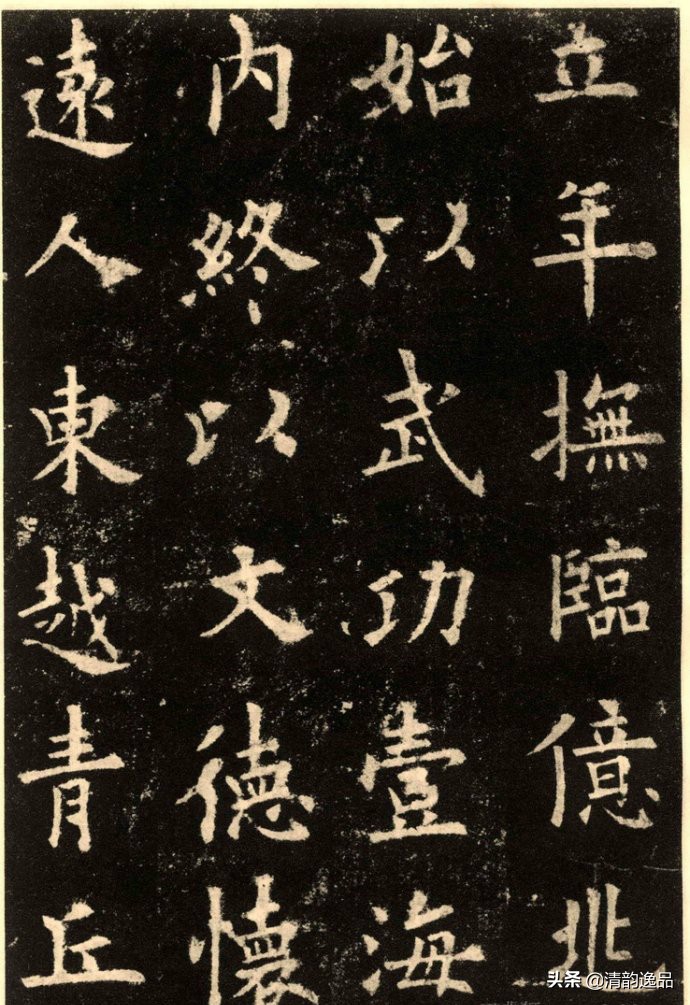 立年撫臨億兆
始以武功壹海
内終以文德懷
遠人東越青丘
头条 @清韵逸品